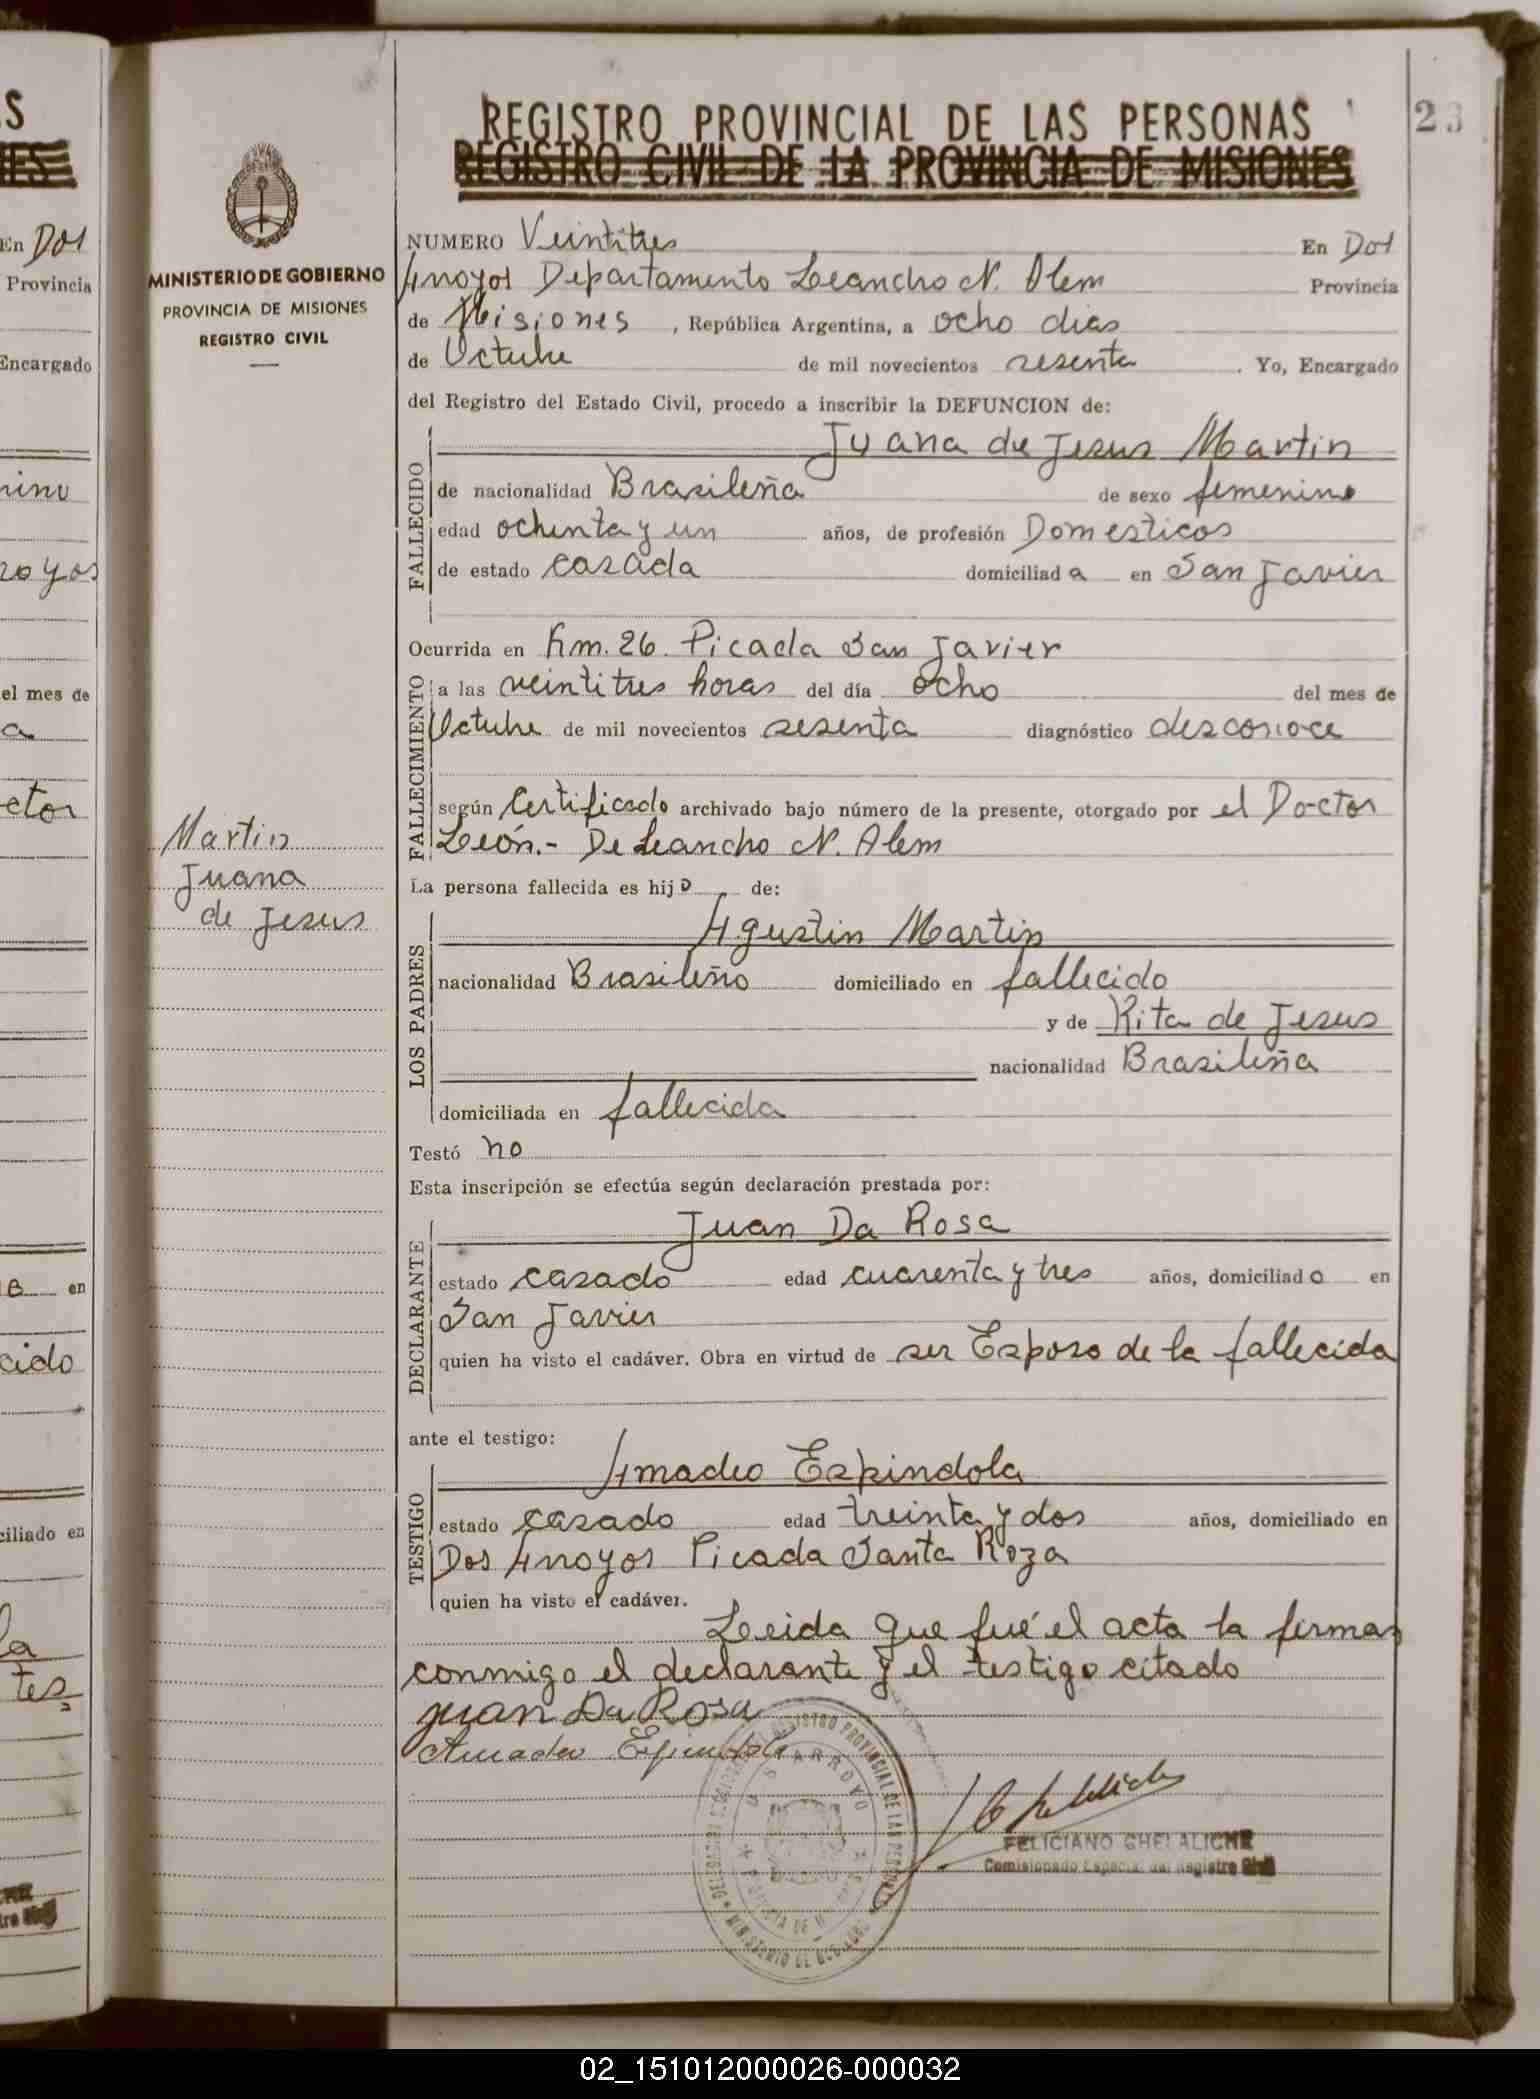 REGISTRO PROVINCIAL DE LAS PERSONAS
REGISTRO CIVIL DE LA PROVINCIA DE MISIONES
23
MINISTERIO DE GOBIERNO
PROVINCIA DE MISIONES
REGISTRO CIVIL
NUMERO Veintitres En Dos
Arroyos Departamento Leandro N. Alem Provincia
de Misiones, República Argentina, a ocho dias
de Octubre de mil novecientos sesenta. Yo, Encargado
del Registro del Estado Civil, procedo a inscribir la DEFUNCION de:
FALLECIDO
Juana de Jesus Martin
de nacionalidad Brasileña de sexo femenino
edad ochenta y un años, de profesión Domesticos
de estado casada domiciliada en San Javier
FALLECIMIENTO
Ocurrida en Km. 26. Picada San Javier
a las veintitres horas del día ocho del mes de
Octubre de mil novecientos sesenta diagnóstico desconoce
según Certificado archivado bajo número de la presente, otorgado por el Doctor
León.- De Leandro N. Alem
Martin
Juana
de Jesus
La persona fallecida es hijo de:
LOS PADRES
Agustin Martin
nacionalidad Brasileño domiciliado en fallecido
y de Rita de Jesus
nacionalidad Brasileña
domiciliada en fallecida
Testó no
Esta inscripción se efectúa según declaración prestada por:
DECLARANTE
Juan Da Rosa
estado casado edad cuarenta y tres años, domiciliado en
San Javier
quien ha visto el cadáver. Obra en virtud de ser Esposo de la fallecida
ante el testigo:
TESTIGO
Amadeo Espindola
estado casado edad treinta y dos años, domiciliado en
Dos Arroyos Picada Santa Roza
quien ha visto el cadáver.
Leida que fué el acta la firman
conmigo el declarante y el testigo citado
Juan Da Rosa
Amadeo Espindola
FELICIANO CHELALICHE
Comisionado Especial del Registro Civil
En Dos
Provincia
Encargado
el mes de
ctor
en
cido
ciliado en
la
tes
02_151012000026-000032